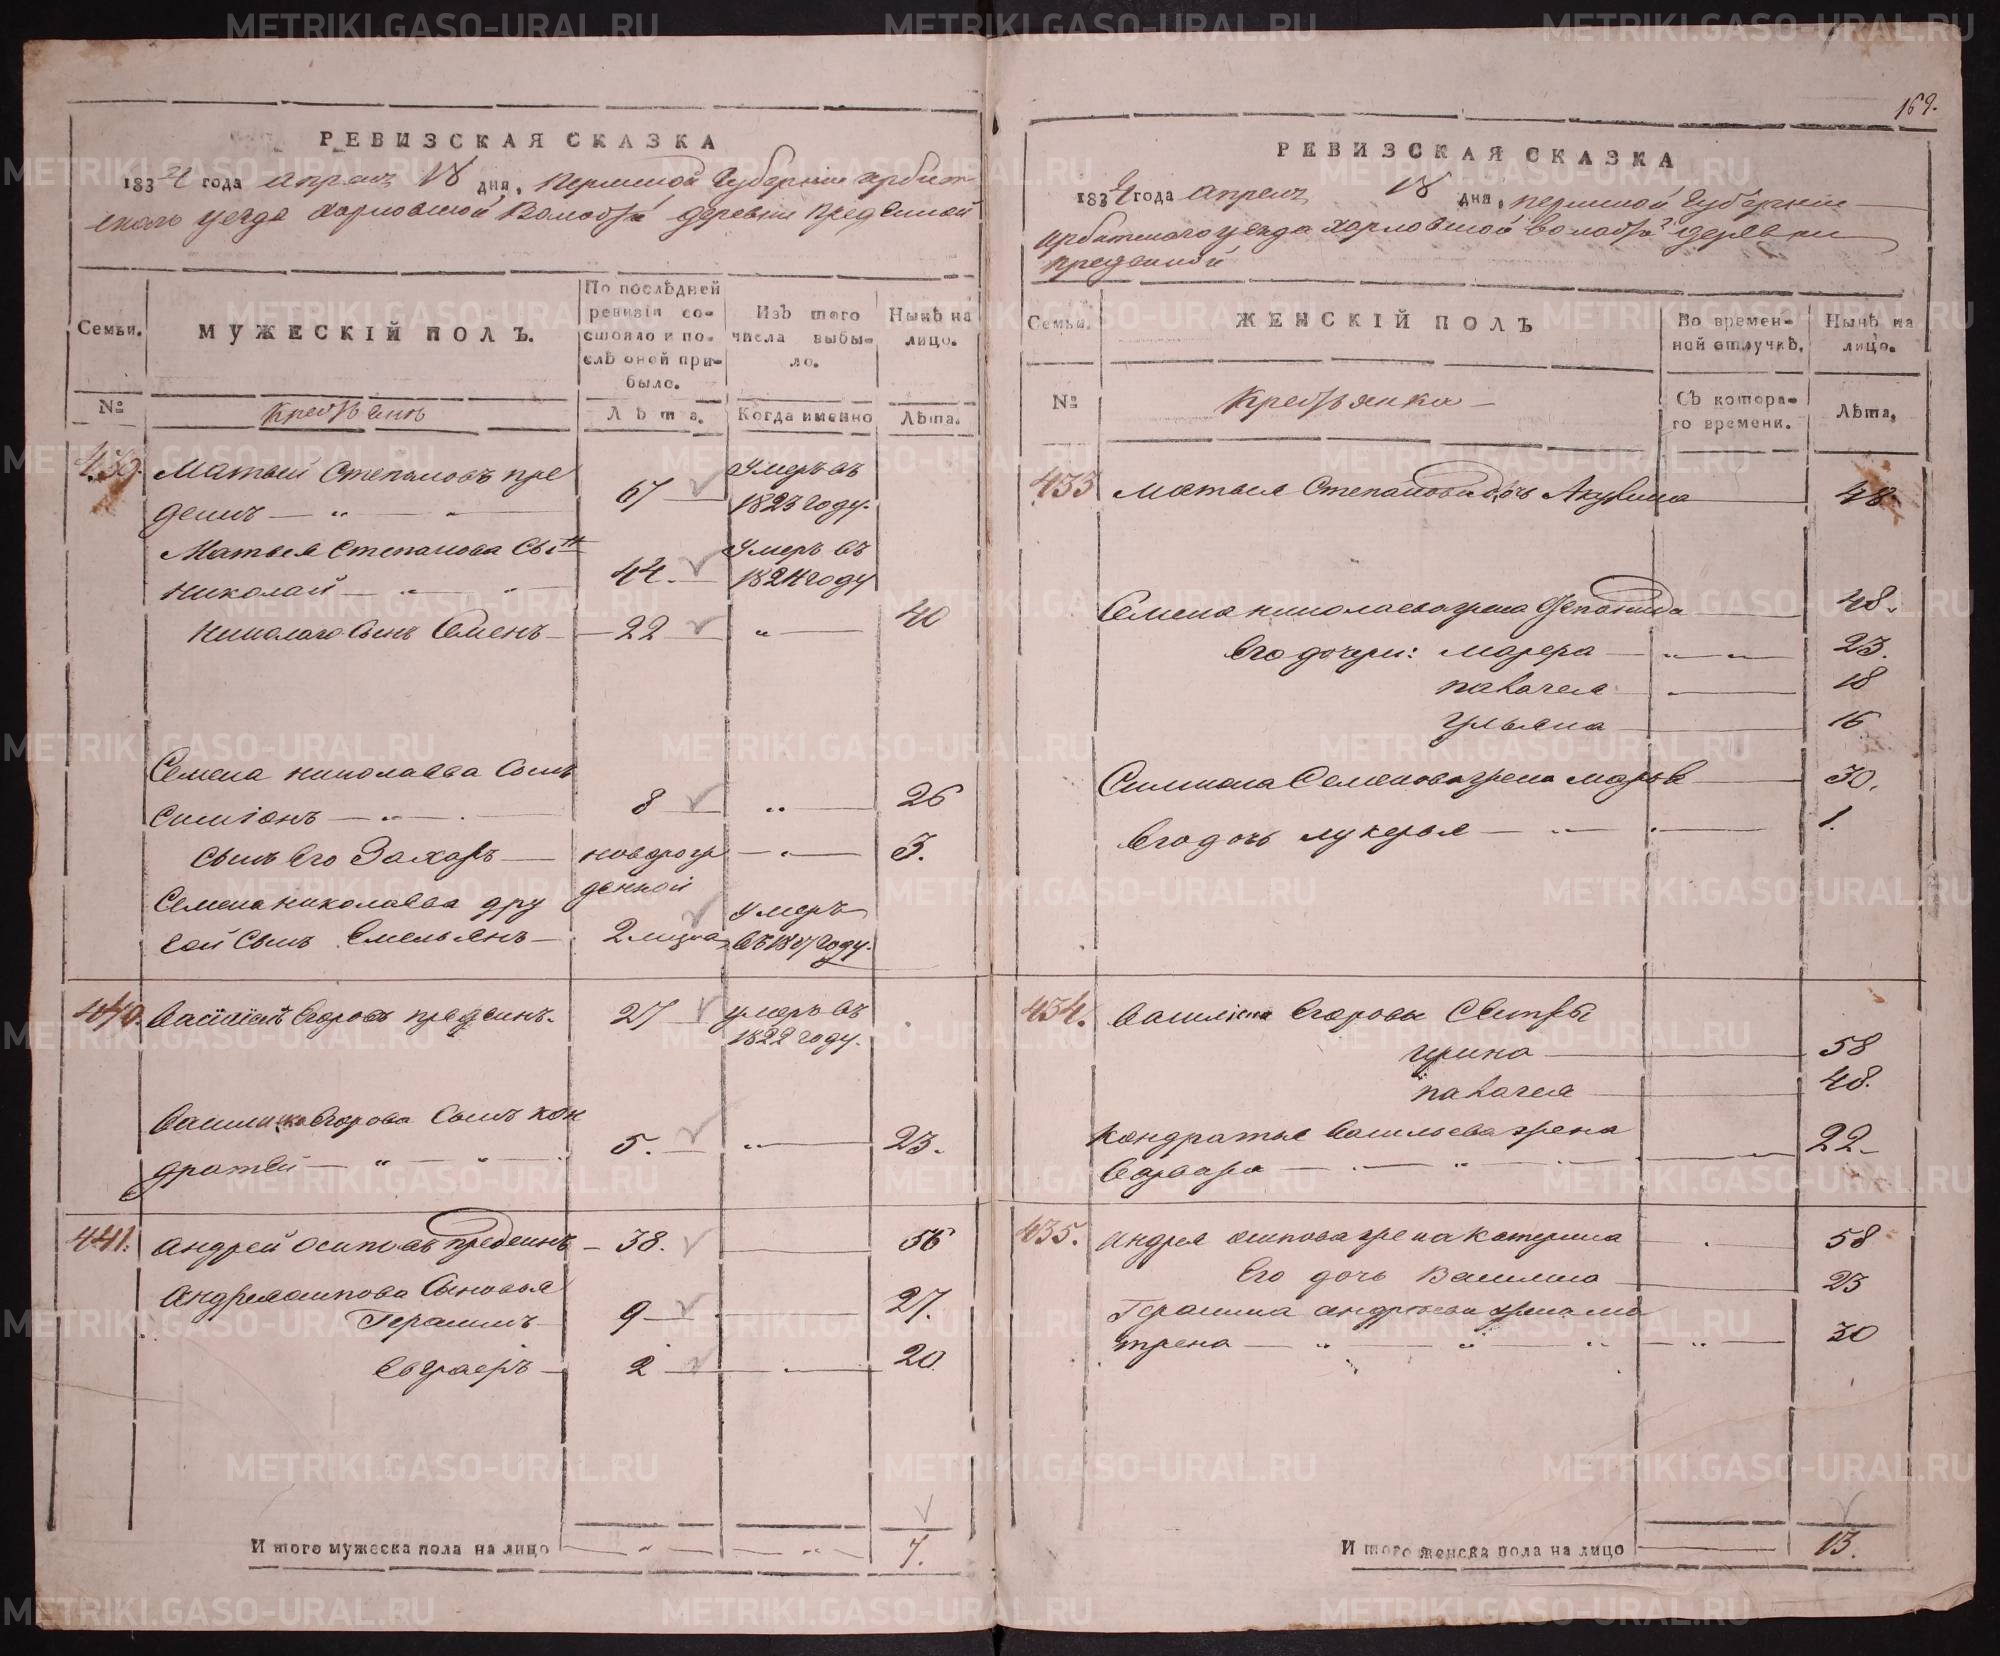 РЕВИЗСКАЯ СКАЗКА
1834 года апреля 18 дня, Пермской Губернии Ирбит-
скаго уезда Харловской Волости деревни Предеиной
Семьи.
МУЖЕСКІЙ ПОЛЪ.
По послѣдней ревизіи со-
стояло и по-
слѣ оной при-
было.
Изъ того
числа выбы-
ло.
Нынѣ на
лицо.
№
Крестьянъ
Лѣта.
Когда именно
Лѣта.
439. Матвей Степановъ пре
деинъ 67 Умеръ въ 1823 году.
Матвея Степанова Сынъ
Николай 44. Умеръ въ 1824 году
Николаго Сынъ Семенъ 22 40
Семена николаева Сынъ
Симионъ 8 26
Сынъ Его Захаръ новорож
денной 3.
Семена николаева дру
гой Сынъ Емельянъ 2 месяца Умеръ въ 1817 году.
440. Василий Егоровъ предеинъ. 27 умеръ въ 1822 году.
Василия Егорова Сынъ кон
дратей 5. 23.
441. Андрей Осиповъ предеинъ 38. 56
Андрея осипова Сыновья
Герасимъ 9 27.
Евграфъ 2 20
И того мужеска пола на лицо 7.
169.
РЕВИЗСКАЯ СКАЗКА
1834 года апреля 18 дня, пермской Губернии
Ирбитскаго уезда Харловской волости деревни
предеиной
Семьи.
ЖЕНСКІЙ ПОЛЪ
Во времен-
ной отлучкѣ.
Нынѣ на
лицо.
№
Крестьянка
Съ котора-
го времени.
Лѣта,
433 Матвея Степанова дочь Акулина 48.
Семена николаева жена Степанида 48.
Его дочери: марфа 23.
пелагея 18
Ульяна 16
Симиона Семенова жена марья 30.
Его дочь лукерья 1.
434. Василия Егорова Сестры
ирина 58
пелагея 48.
Кондратья Васильева жена
Варвара 22
435. Андрея осипова жена Катерина 58
Его дочь Василиса 23
Герасима андреева жена ма
трена 30
И того женска пола на лицо 13.
METRIKI.GASO-URAL.RU